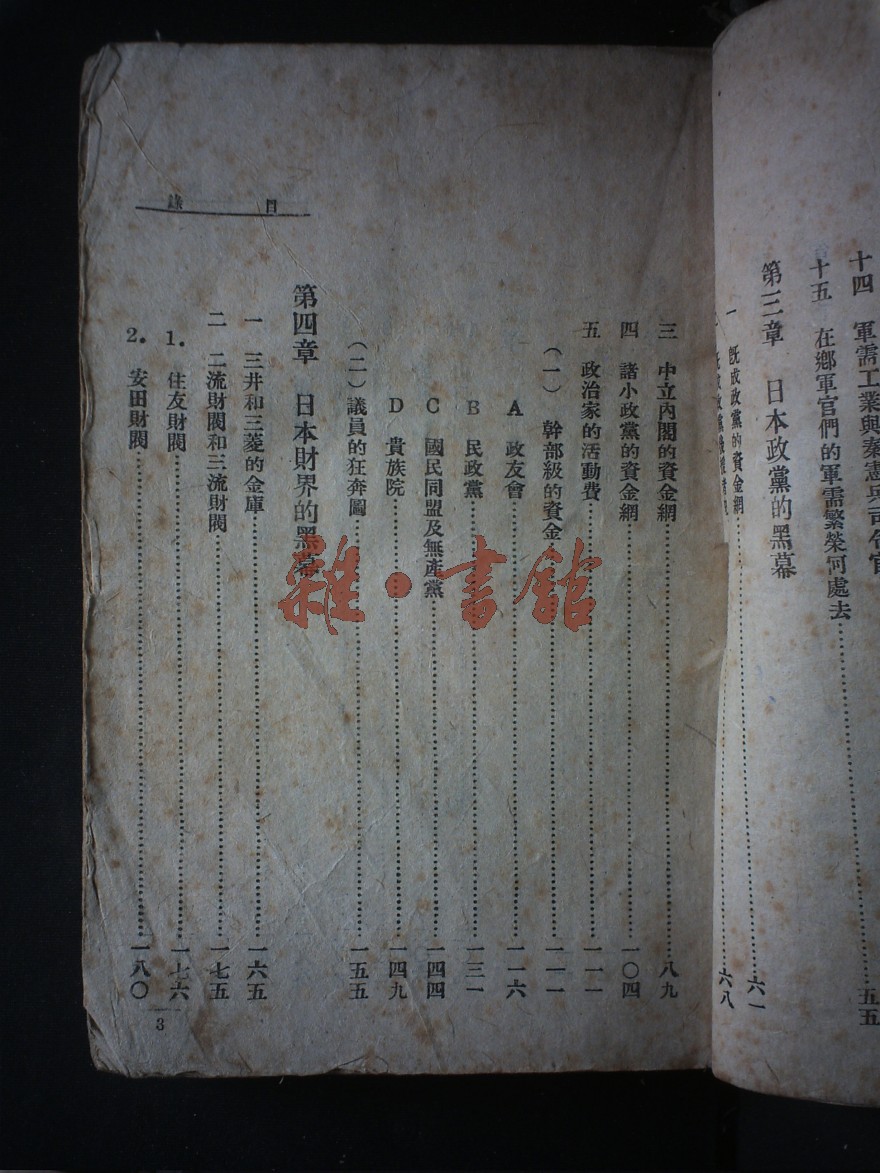 十四 軍需工業與秦憲兵司令官
十五 在鄉軍官們的軍需繁榮何處去……五五
第三章 日本政黨的黑幕
一 既成政黨的資金網……六一
六八
目錄
三 中立內閣的資金網……八九
四 諸小政黨的資金網……一〇四
五 政治家的活動費……一一一
(一) 幹部級的資金……一一一
A 政友會……一一六
B 民政黨……一三一
C 國民同盟及無產黨……一四四
D 貴族院……一四九
(二) 議員的狂奔圖……一五五
第四章 日本財界的黑幕
一 三井和三菱的金庫……一六五
二 二流財閥和三流財閥……一七五
1. 住友財閥……一七六
2. 安田財閥……一八〇
3
雜·書館